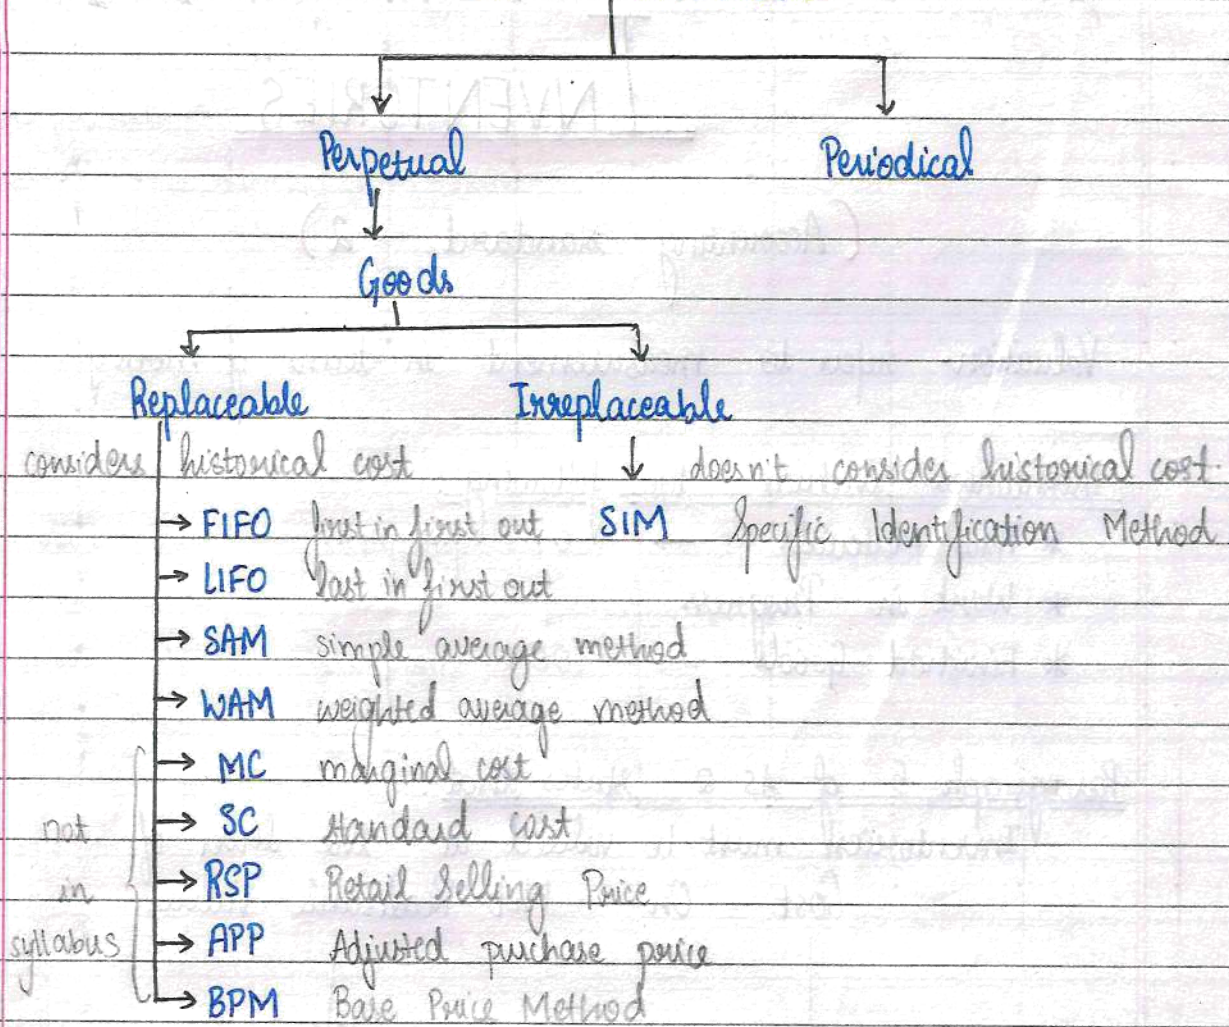 Perpetual Periodical
Goods
Replaceable Irreplaceable
considers historical cost doesn't consider historical cost
→ FIFO first in first out SIM Specific Identification Method
→ LIFO last in first out
→ SAM simple average method
→ WAM weighted average method
→ MC marginal cost
not → SC standard cost
in → RSP Retail Selling Price
syllabus → APP Adjusted purchase price
→ BPM Base Price Method